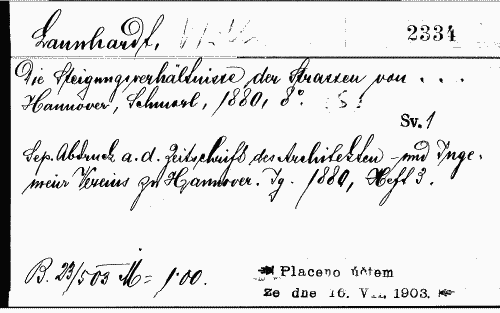 Launhardt, 2334
Die Steigungsverhältnisse der Strassen von . . .
Hannover, Schmorl, 1880, 8°. S.
Sv. 1
Sep. Abdruck a. d. Zeitschrift des Architekten- und Inge-
nieur Vereins zu Hannover. Jg. 1880, Heft 3.
B. 23/503 M = 1·00.
Placeno účtem
ze dne 16. VII. 1903.